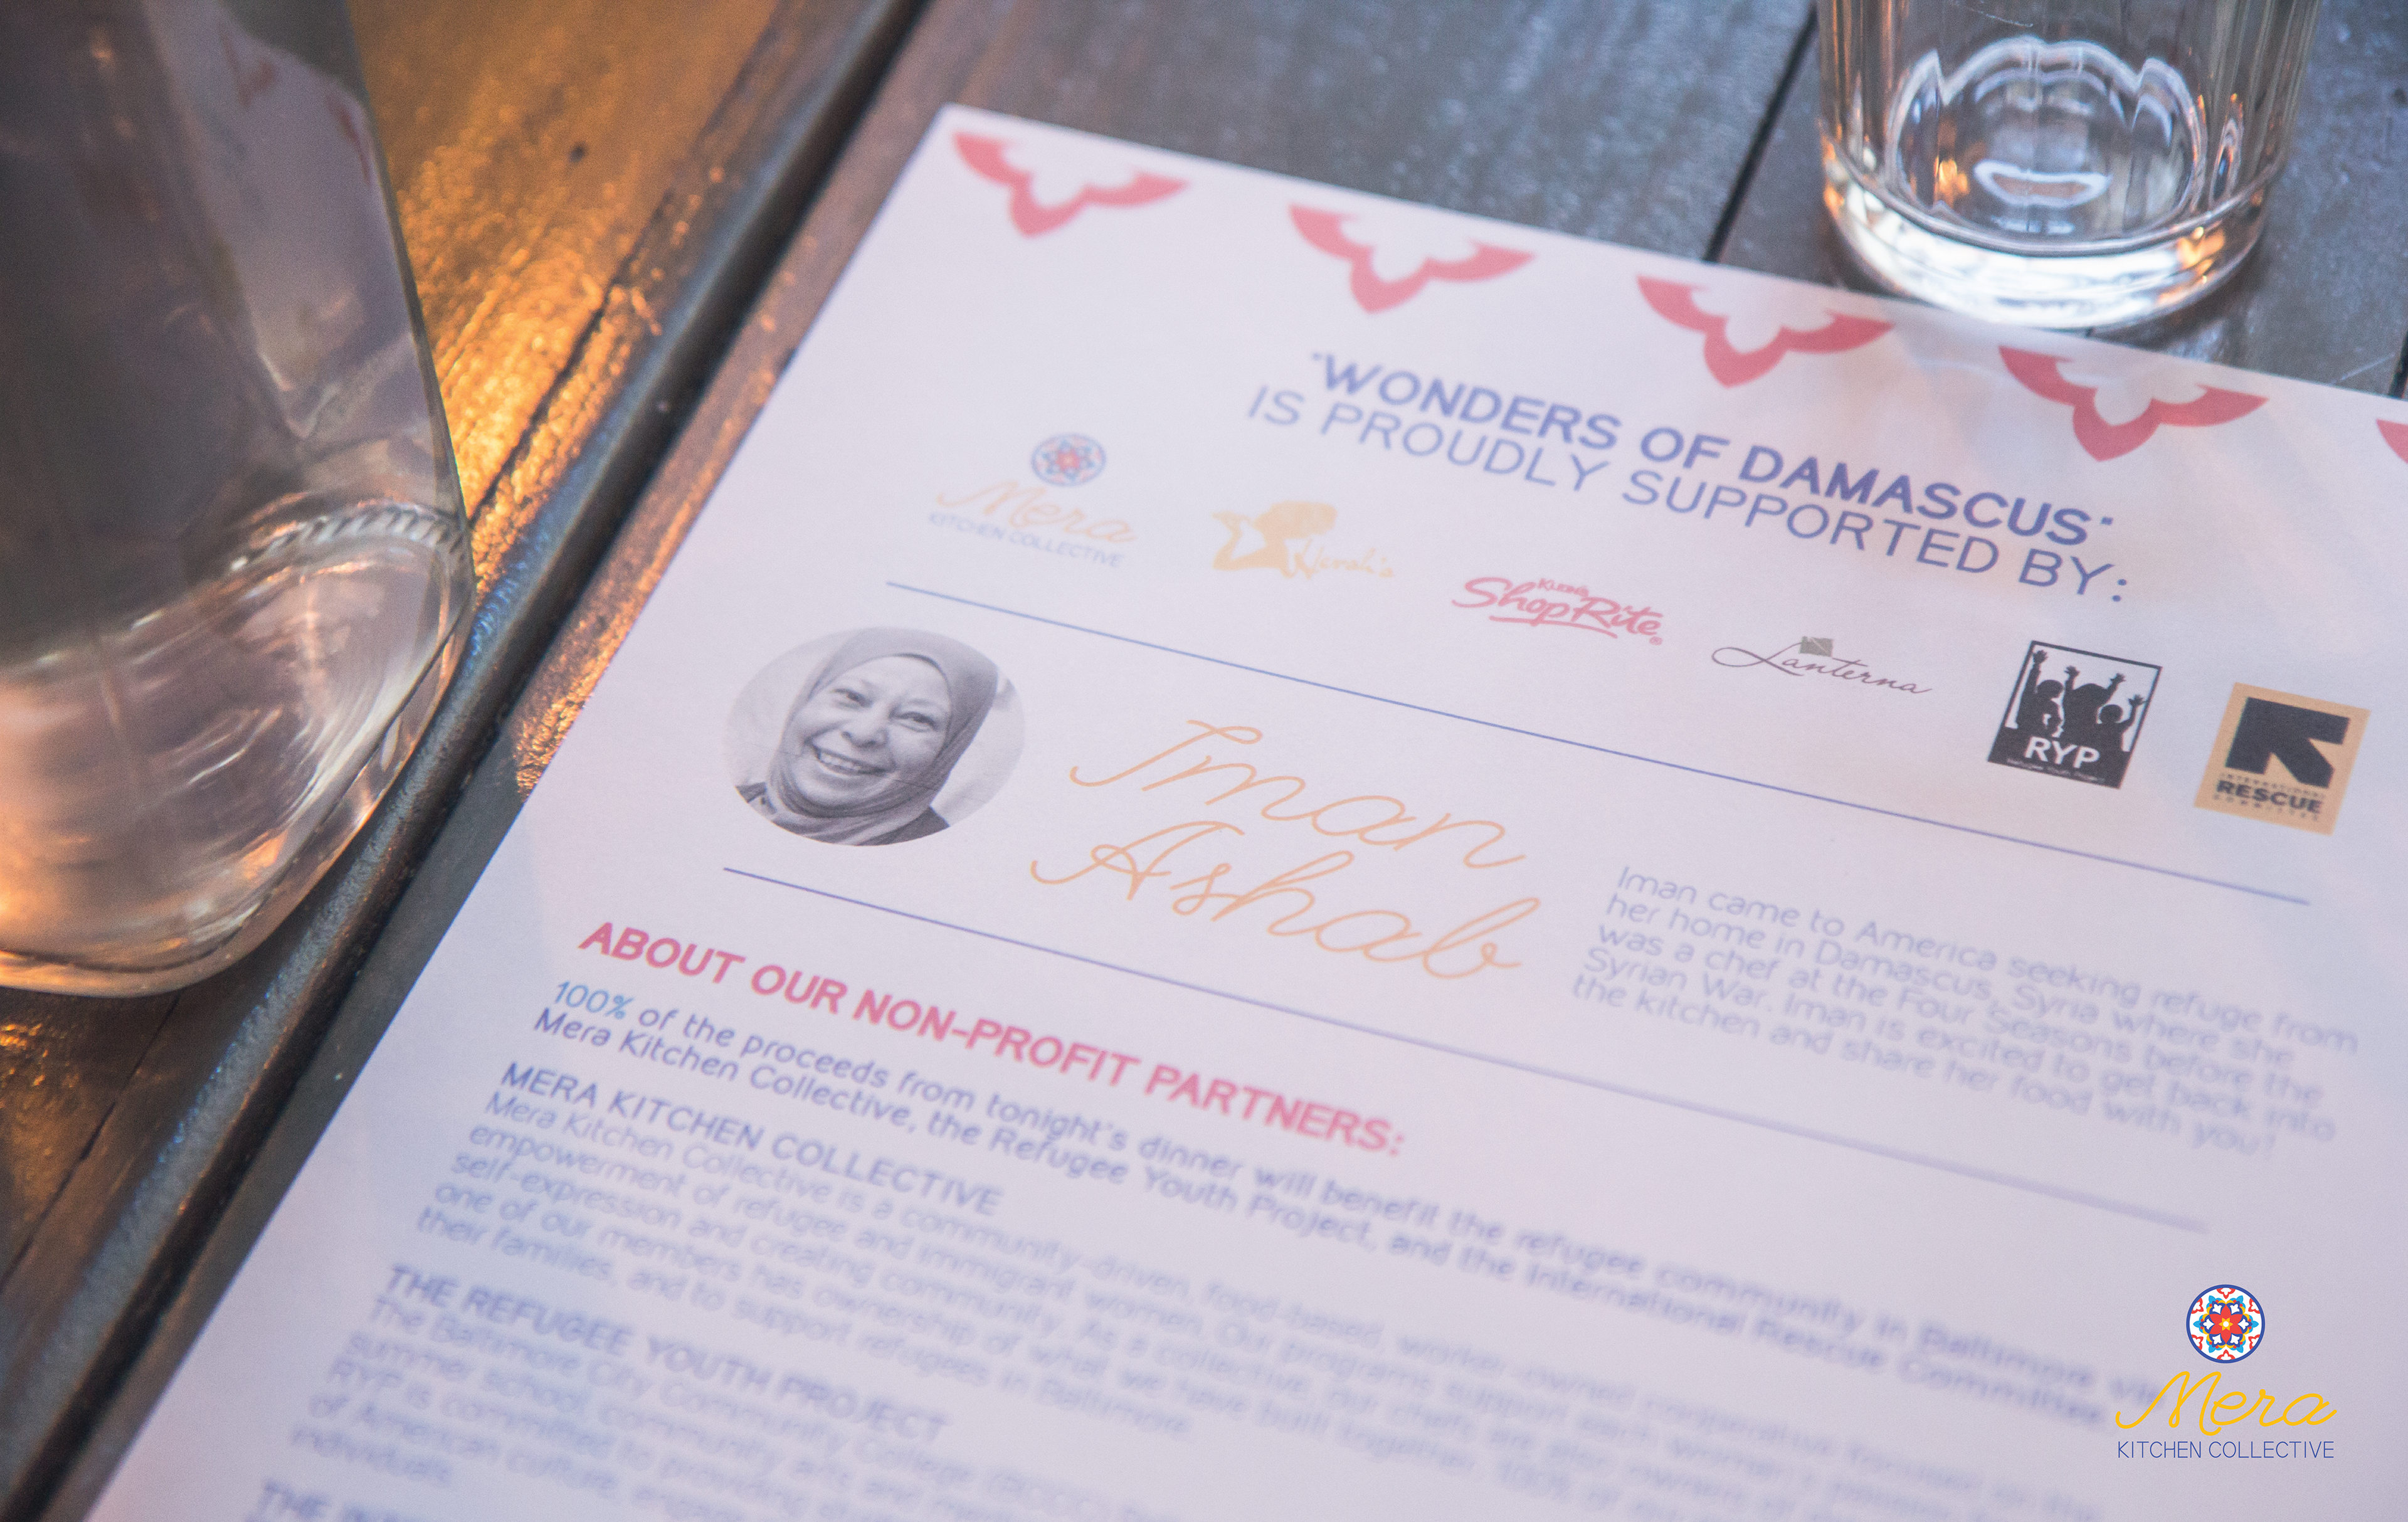 "WONDERS OF DAMASCUS"
IS PROUDLY SUPPORTED BY:
Mera
KITCHEN COLLECTIVE
KLEIN'S
ShopRite
Lanterna
RYP
INTERNATIONAL
RESCUE
COMMITTEE
Iman
Ashab
Iman came to America seeking refuge from
her home in Damascus, Syria where she
was a chef at the Four Seasons before the
Syrian War. Iman is excited to get back into
the kitchen and share her food with you!
ABOUT OUR NON-PROFIT PARTNERS:
100% of the proceeds from tonight's dinner will benefit the refugee community in Baltimore via
Mera Kitchen Collective, the Refugee Youth Project, and the International Rescue Committee.
MERA KITCHEN COLLECTIVE
Mera Kitchen Collective is a community-driven, food-based, worker-owned cooperative focused on the
empowerment of refugee and immigrant women. Our programs support each woman's
self-expression and creating community. As a collective, our chefs are also owners of
one of our members has ownership of what we have built together. 100% of
their families, and to support refugees in Baltimore.
THE REFUGEE YOUTH PROJECT
The Baltimore City Community College (BCCC)
summer school, community arts, and
RYP is committed to providing
of American culture,
individuals.
THE
Mera
KITCHEN COLLECTIVE